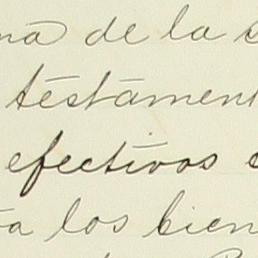 na de la s
testament
efectivos e
ta los bien